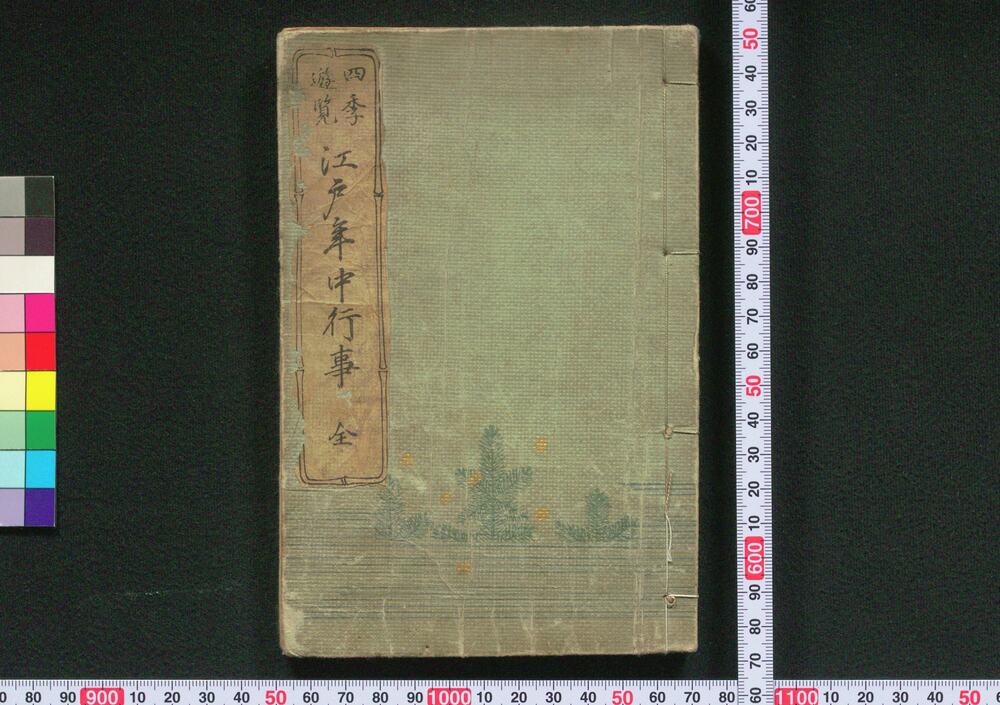 四季
遊覧
江戸年中行事 全
60 50 40 30 20 10 700 90 80 70 60 50 40 30 20 10 600 90 80 70 60
0 80 90 900 10 20 30 40 50 60 70 80 90 1000 10 20 30 40 50 60 70 80 1100 10 20 30 40 50 6